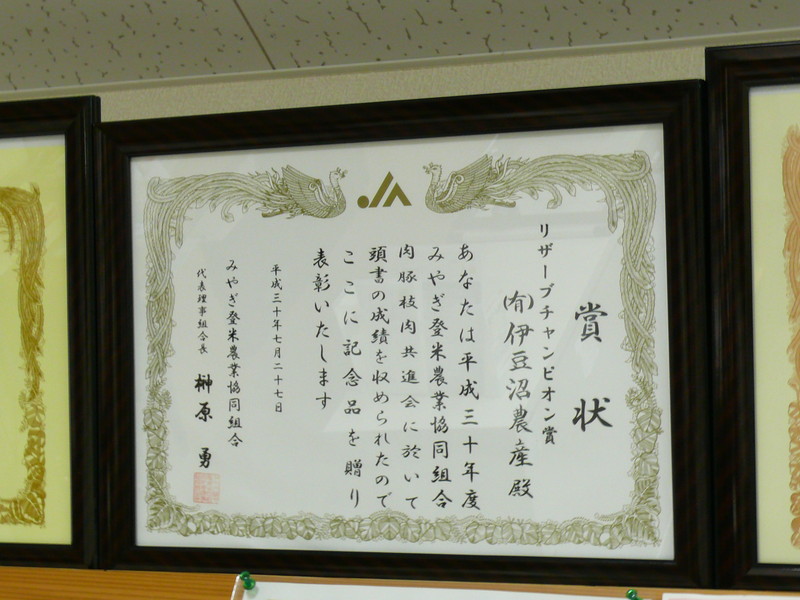 賞状
リザーブチャンピオン賞
(有)伊豆沼農産殿
あなたは平成三十年度
みやぎ登米農業協同組合
肉豚枝肉共進会に於いて
頭書の成績を収められたので
ここに記念品を贈り
表彰いたします
平成三十年七月二十七日
みやぎ登米農業協同組合
代表理事組合長 榊原勇